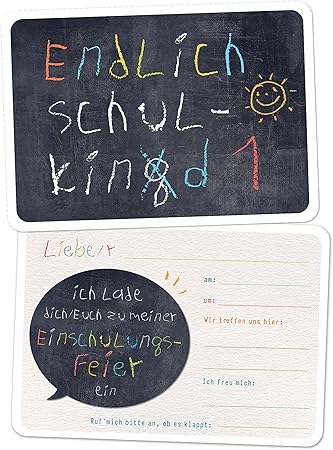 Endlich
schul-
kind 1
Liebe/r
ich Lade
dich/Euch zu meiner
Einschulungs-
Feier
ein
am:
um:
Wir treffen uns hier:
Ich freu mich:
Ruf'mich bitte an, ob es klappt: